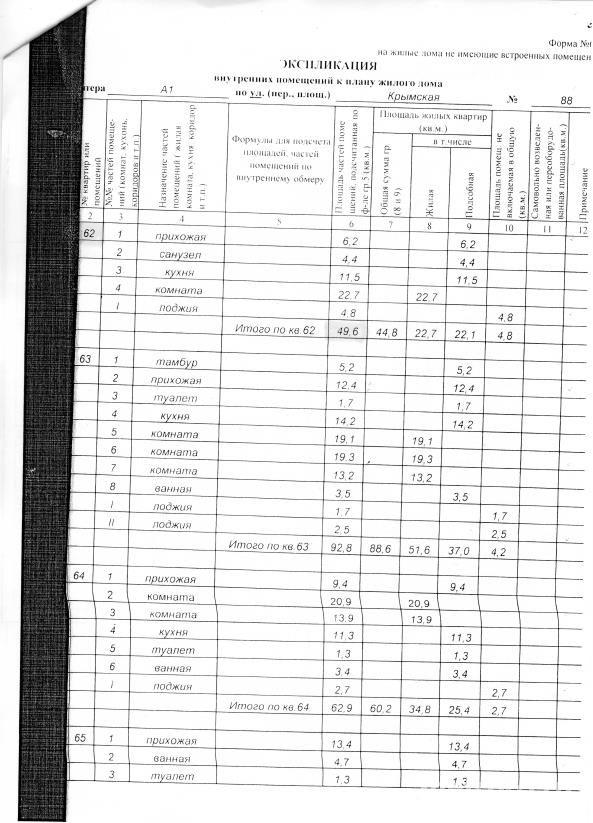 Форма №
на жилые дома не имеющие встроенных помещен
ЭКСПЛИКАЦИЯ
внутренних помещений к плану жилого дома
тера А1 по ул. (пер., площ.) Крымская № 88
№ квартир или помещений
№№ частей помещений (комнат, кухонь, коридоров и т.п.)
Назначение частей помещений ( жилая комната, кухня коридор и т.д.)
Формулы для подсчета площадей, частей помещений по внутреннему обмеру
Площадь частей помещений, подсчитанная по ф-ле гр.5 (кв.м.)
Площадь жилых квартир (кв.м.)
Общая сумма гр (8 и 9)
в т.числе
Жилая
Подсобная
Площадь помещ. не включаемая в общую (кв.м.)
Самовольно возведенная или переоборудованная площадь(кв.м.)
Примечание
2 3 4 5 6 7 8 9 10 11 12
62 1 прихожая 6,2 6,2
2 санузел 4,4 4,4
3 кухня 11,5 11,5
4 комната 22,7 22,7
I лоджия 4,8 4,8
Итого по кв.62 49,6 44,8 22,7 22,1 4,8
63 1 тамбур 5,2 5,2
2 прихожая 12,4 12,4
3 туалет 1,7 1,7
4 кухня 14,2 14,2
5 комната 19,1 19,1
6 комната 19,3 19,3
7 комната 13,2 13,2
8 ванная 3,5 3,5
I лоджия 1,7 1,7
II лоджия 2,5 2,5
Итого по кв.63 92,8 88,6 51,6 37,0 4,2
64 1 прихожая 9,4 9,4
2 комната 20,9 20,9
3 комната 13,9 13,9
4 кухня 11,3 11,3
5 туалет 1,3 1,3
6 ванная 3,4 3,4
I лоджия 2,7 2,7
Итого по кв.64 62,9 60,2 34,8 25,4 2,7
65 1 прихожая 13,4 13,4
2 ванная 4,7 4,7
3 туалет 1,3 1,3